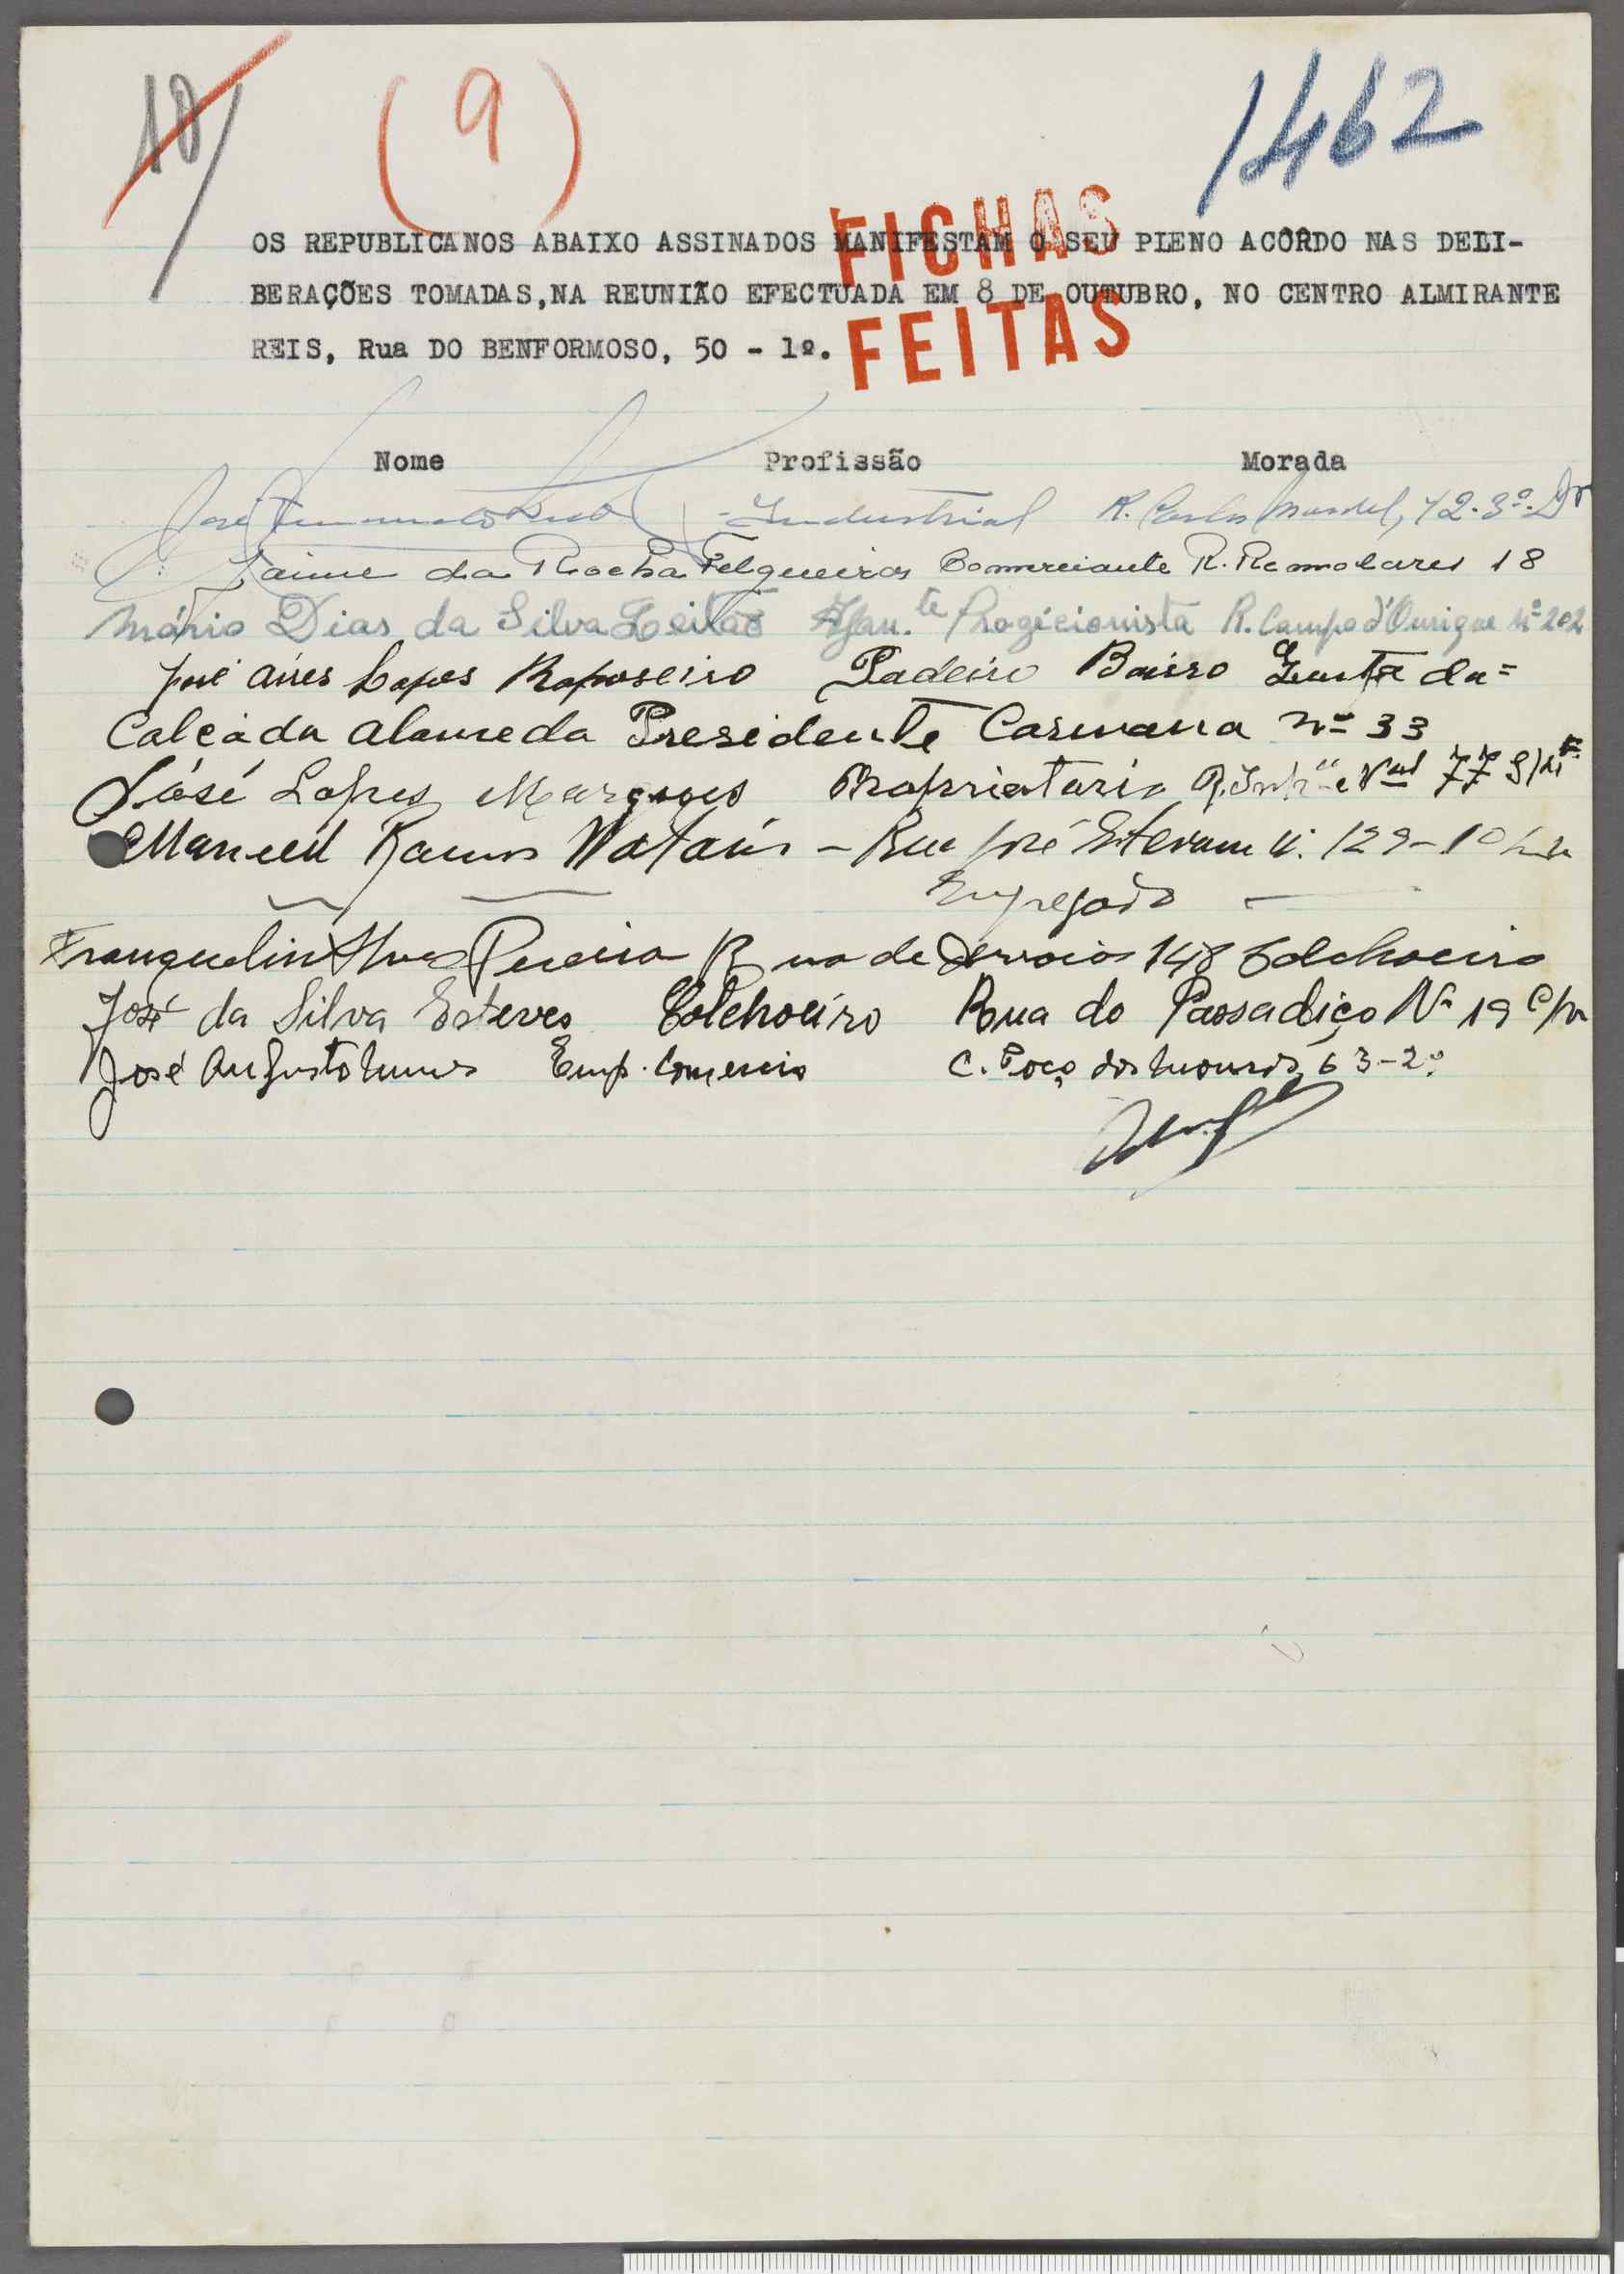 10
(9)
1462
FICHAS
FEITAS
OS REPUBLICANOS ABAIXO ASSINADOS MANIFESTAM O SEU PLENO ACÔRDO NAS DELI-
BERAÇÕES TOMADAS,NA REUNIÃO EFECTUADA EM 8 DE OUTUBRO, NO CENTRO ALMIRANTE
REIS, Rua DO BENFORMOSO, 50 - 1º.
Nome Profissão Morada
José Industrial R. Carlos Mardel, 72-3º-Dº
Jaime da Rocha Felgueiras Commerciante R. Remolares 18
Mário Dias da Silva Leitão R. Campo d'Ourique Nº 202
José Aires Lopes Raposeiro Padeiro Bairro da=
Calçada Alameda Presidente Carmona Nº 33
José Lopes Marques Propriatario 77
Manuel Ramos - Rua José Estevam N. 129-1º
Empregado
Franquelin Alves Pereira Rua de Arroios 148 Colchoeiro
José da Silva Esteves Colchoeiro Rua do Passadiço Nº 19
José Augusto Nunes Emp. Comercio C. Poço dos Mouros, 63-2º